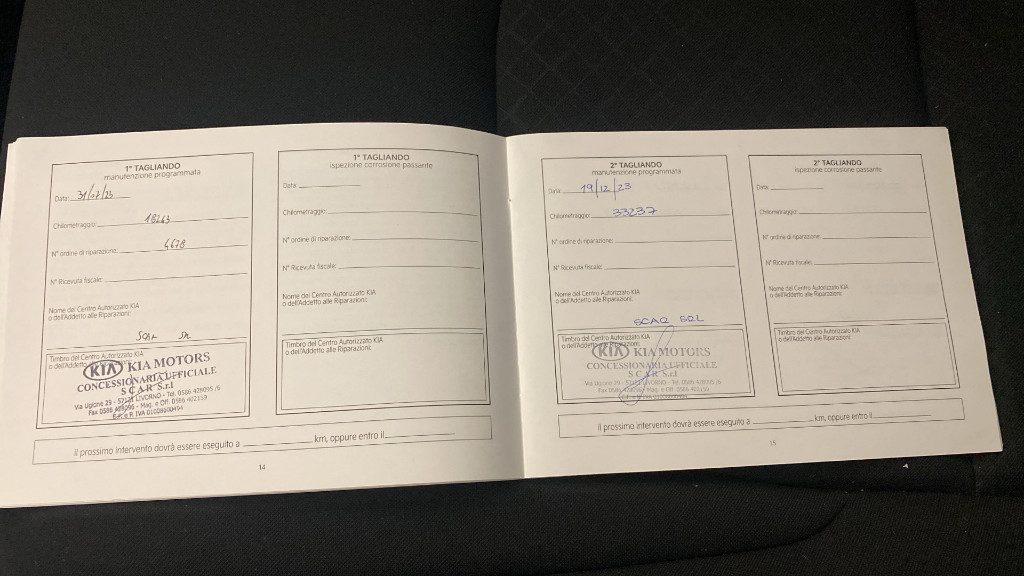 1° TAGLIANDO
manutenzione programmata
Data: 31/07/23
Chilometraggio: 18263
N° ordine di riparazione: 4678
N° Ricevuta fiscale:
Nome del Centro Autorizzato KIA
o dell'Addetto alle Riparazioni:
SCAR SRL
Timbro del Centro Autorizzato KIA
o dell'Addetto alle Riparazioni:
KIA KIA MOTORS
CONCESSIONARIA UFFICIALE
S C A R S.r.l
Via Ugione 29 - 57121 LIVORNO - Tel. 0586 428095 /6
Fax 0586 428096 - Mag. e Off. 0586 402159
C.F. e P. IVA 01008000494
1° TAGLIANDO
ispezione corrosione passante
Data:
Chilometraggio:
N° ordine di riparazione:
N° Ricevuta fiscale:
Nome del Centro Autorizzato KIA
o dell'Addetto alle Riparazioni:
Timbro del Centro Autorizzato KIA
o dell'Addetto alle Riparazioni:
il prossimo intervento dovrà essere eseguito a km, oppure entro il
14
2° TAGLIANDO
manutenzione programmata
Data: 19/12/23
Chilometraggio: 33237
N° ordine di riparazione:
N° Ricevuta fiscale:
Nome del Centro Autorizzato KIA
o dell'Addetto alle Riparazioni:
SCAR SRL
Timbro del Centro Autorizzato KIA
o dell'Addetto alle Riparazioni:
KIA KIA MOTORS
CONCESSIONARIA UFFICIALE
S C A R S.r.l
Via Ugione 29 - 57121 LIVORNO - Tel. 0586 428095 /6
Fax 0586 428096 - Mag. e Off. 0586 402159
2° TAGLIANDO
ispezione corrosione passante
Data:
Chilometraggio:
N° ordine di riparazione:
N° Ricevuta fiscale:
Nome del Centro Autorizzato KIA
o dell'Addetto alle Riparazioni:
Timbro del Centro Autorizzato KIA
o dell'Addetto alle Riparazioni:
il prossimo intervento dovrà essere eseguito a km, oppure entro il
15